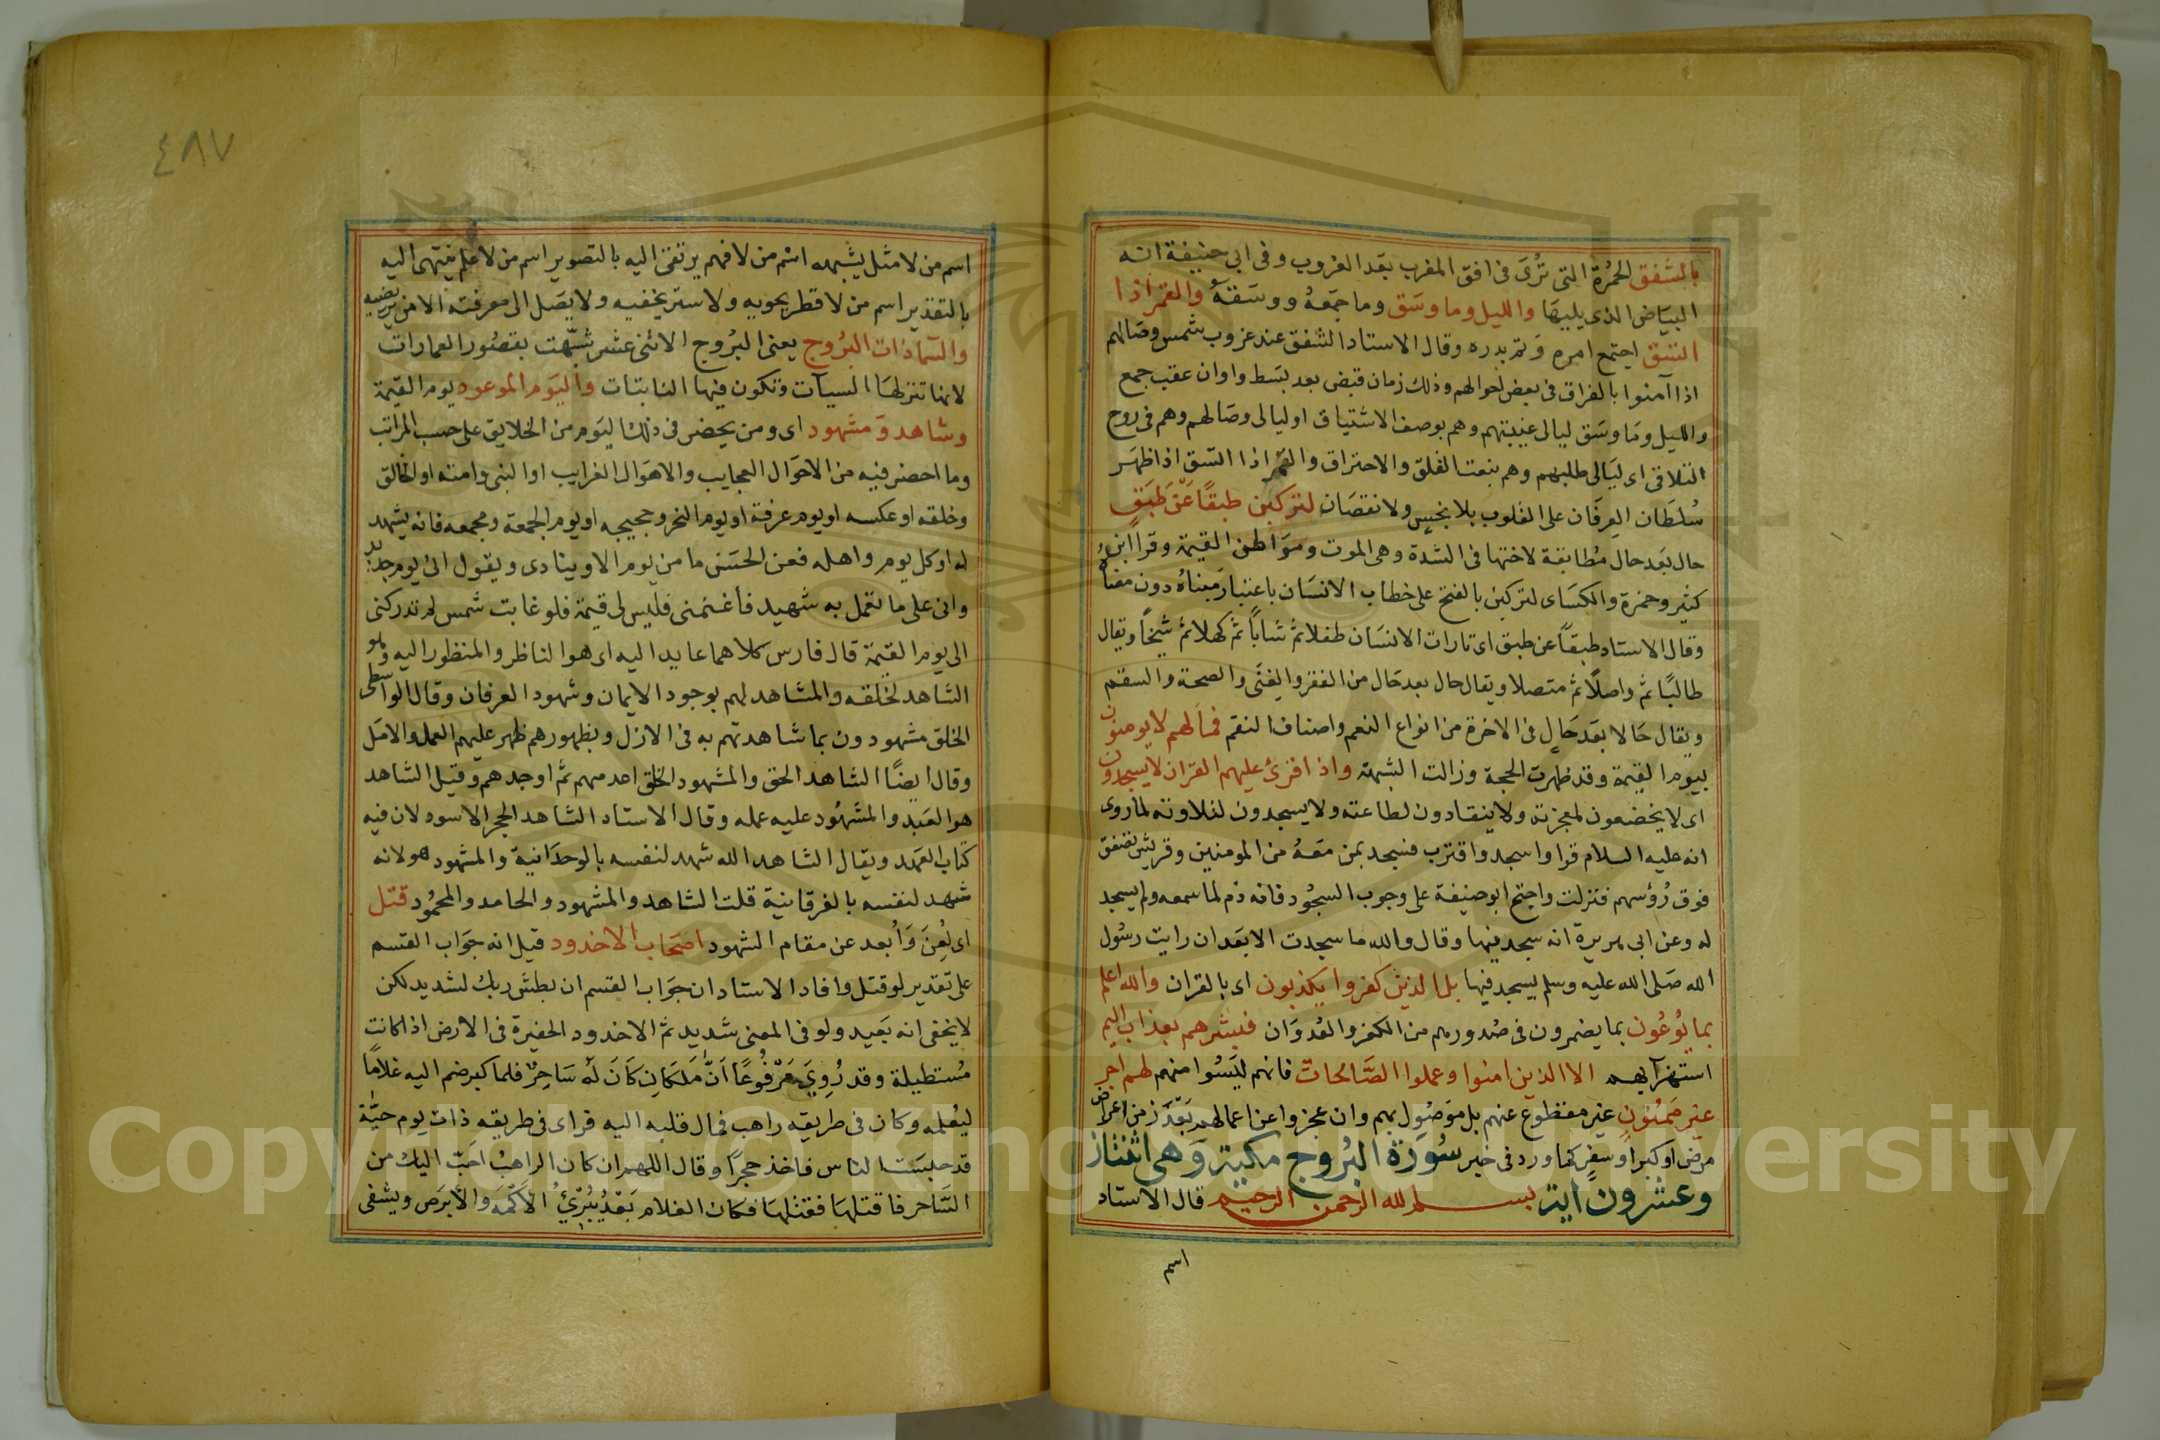 بالشفق الحمرة التى ترى فى افق المغرب بعد الغروب وفى ابى حنيفة انه
البياض الذى يليها والليل وما وسق وما جمعه ووسقه والقمر اذا
اتسق اجتمع امره وتم بدره وقال الاستاد الشفق عند غروب شمس وصالهم
اذا آمنوا بالفراق فى بعض احوالهم وذلك زمان قبض بعد بسط واوان عقيب جمع
والليل وما وسق ليالى غيبتهم وهم بوصف الاشتياق او ليالى وصالهم وهم فى روح
التلاقى اى ليالى طلبهم وهم بنعت القلق والاحتراق والقمر اذا اتسق اذا ظهر
سلطان العرفان على القلوب بلا بخس ولا نقصان لتركبن طبقا عن طبق
حال بعد حال مطابقة لاختها فى الشدة وهى الموت ومواطن القيمة وقرا ابن
كثير وحمزة والكساى لتركبن بالفتح على خطاب الانسان باعتبار مبناه دون معناه
وقال الاستاد طبقا عن طبق اى تارات الانسان طفلا ثم شابا ثم كهلا ثم شيخا ويقال
طالبا ثم واصلا ثم متصلا ويقال حال بعد حال من الفقر والغنى والصحة والسقم
ويقال حالا بعد حال فى الاخرة من انواع النعم واصناف النقم فما لهم لا يومنون
بيوم القيمة وقد ظهرت الحجة وزالت الشبهة واذا قرئ عليهم القران لا يسجدون
اى لا يخضعون لمعجزته ولا ينقادون لطاعته ولا يسجدون لتلاوته لما روى
انه عليه السلام قرا واسجد واقترب فسجد بمن معه من المومنين وقريش تصفق
فوق رؤسهم فنزلت واحتج ابو حنيفة على وجوب السجود فانه ذم لما سمعه ولم يسجد
له وعن ابى هريرة انه سجد فيها وقال والله ما سجدت الا بعد ان رايت رسول
الله صلى الله عليه وسلم يسجد فيها بل الذين كفروا يكذبون اى بالقران والله اعلم
بما يوعون بما يضمرون فى صدورهم من الكفر والعدوان فبشرهم بعذاب اليم
استهزآ بهم الا الذين امنوا وعملوا الصالحات فانهم ليسوا منهم لهم اجر
غير ممنون غير مقطوع عنهم بل موصول بهم وان عجزوا عن اعمالهم بعد زمن اعراض
مرض او كبر او سفر كما ورد فى خبر سورة البروج مكية وهى اثنتان
وعشرون اية بسم الله الرحمن الرحيم قال الاستاد
اسم
٤٨٧
اسم من لا مثل يشبهه اسم من لا فهم يرتقى اليه بالتصوير اسم من لا علم ينتهى اليه
بالتقدير اسم من لا قطر يحويه ولا ستر يخفيه ولا يصل الى معرفته الا من يرتضيه
والسماء ذات البروج يعنى البروج الاثنى عشر شبهت بقصور العمارات
لانها تنزلها السيارت وتكون فيها الثابتات واليوم الموعود يوم القيمة
وشاهد ومشهود اى ومن يحضر فى ذلك اليوم من الخلايق على حسب المراتب
وما احضر فيه من الاحوال العجايب والاهوال الغرايب او النبى وامته او الخالق
وخلقه او عكسه او يوم عرفة او يوم النحر وحجيجه او يوم الجمعة ومجمعه فانه يشهد
له او كل يوم واهله فعن الحسن ما من يوم الا وينادى ويقول انى يوم جديد
وانى على ما تعمل به شهيد فاغتنمنى فليس لى قيمة فلو غابت شمس لم تدركنى
الى يوم القيمة قال فارس كلاهما عايد اليه اى هو الناظر والمنظور اليه وهو
الشاهد لخلقه والمشاهد لهم بوجود الايمان وشهود العرفان وقال الواسطى
الخلق مشهودون بما شاهدتهم به فى الازل وبظهورهم ظهر عليهم العمل والامل
وقال ايضا الشاهد الحق والمشهود الخلق اعدمهم ثم اوجدهم وقيل الشاهد
هو العبد والمشهود عليه عمله وقال الاستاد الشاهد الحجر الاسود لان فيه
كتاب العهد ويقال الشاهد الله شهد لنفسه بالوحدانية والمشهود هو لانه
شهد لنفسه بالفردانية قلت الشاهد والمشهود والحامد والمحمود قتل
اى لعن وابعد عن مقام الشهود اصحاب الاخدود قيل انه جواب القسم
على تقدير لو قتل وافاد الاستاد ان جواب القسم ان بطش ربك لشديد لكن
لا يخفى انه بعيد ولو فى المعنى شديد ثم الاخدود الحفيرة فى الارض اذا كانت
مستطيلة وقد روى مرفوعا ان ملكا كان له ساحر فلما كبر ضم اليه غلاما
ليعلمه وكان فى طريقه راهب فمال قلبه اليه فراى فى طريقه ذات يوم حية
قد حبست الناس فاخذ حجرا وقال اللهم ان كان الراهب احب اليك من
الساحر فاقتلها فقتلها فكان الغلام بعد يبرئ الاكمه والابرص ويشفى
Copyright © King Saud University